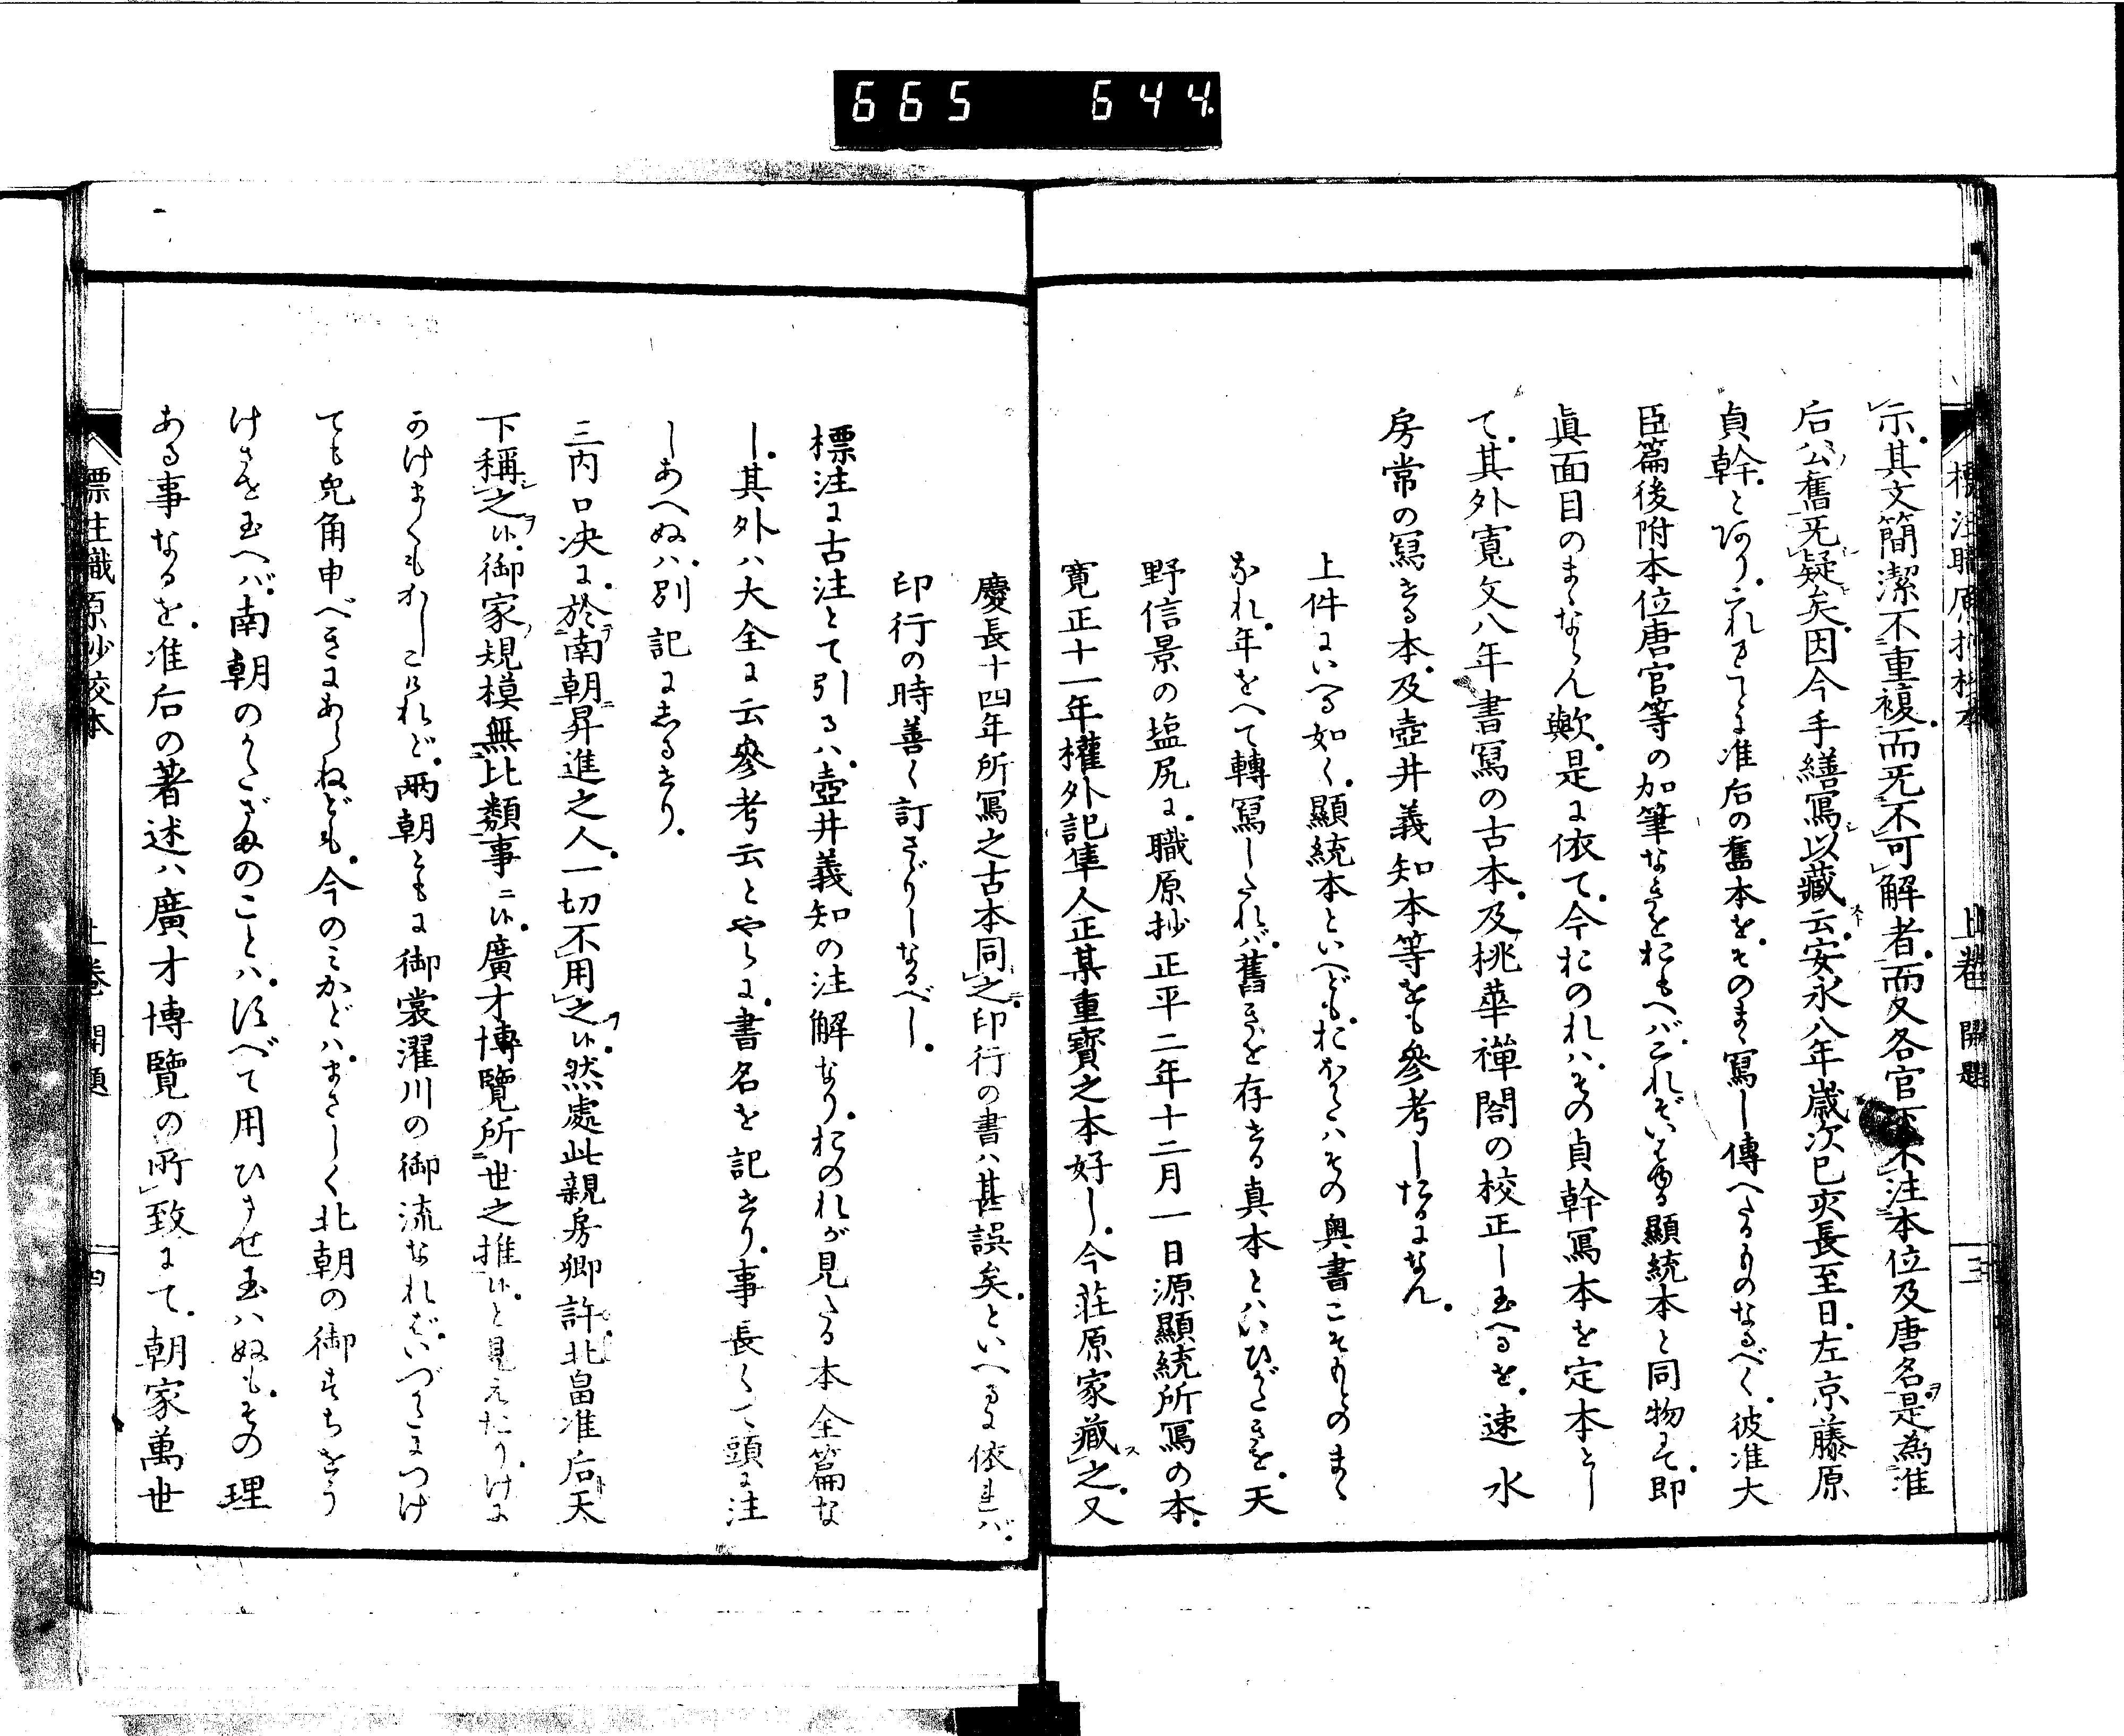 665 644
標注職原抄校本 上巻 開題 三
示。其文簡潔不重複。而无不可解者。而又各官不注本位及唐名。是為准
后公舊无疑矣。因今手繕寫以藏云。安永八年歳次己亥長至日。左京藤原
貞幹。とあり。これまことに准后の舊本を。そのまゝ寫し傳へたるものなるべく。彼准大
臣篇後附本位唐官等の加筆なきをおもへバ。これぞいはゆる顯統本と同物にて。即
眞面目のまゝならん歟。是に依て。今おのれハ。その貞幹寫本を定本とし
て。其外寛文八年書寫の古本。及桃華禅閤の校正し玉へるを。速水
房常の寫せる本。及壺井義知本等をも參考したるになん。
上件にいへる如く。顯統本といへども。おほかたハその奥書こそもとのまゝ
なれ。年をへて轉寫したれバ。舊きを存せる真本とハいひがたきを。天
野信景の塩尻に。職原抄正平二年十二月一日源顯統所寫の本。
寛正十一年權外記隼人正某重寶之本好し。今荘原家藏之。又
慶長十四年所寫之古本同之。印行の書ハ甚誤矣。といへるに依れバ。
印行の時善く訂さゞりしなるべし。
標注に古注とて引るハ。壺井義知の注解なり。おのれが見たる本全篇な
し。其外ハ大全に云參考云とやうに。書名を記せり。事長くて頭に注
しあへぬハ。別記にしるせり。
三内口决に。於南朝昇進之人。一切不用之候。然處此親房卿許北畠准后天
下稱之候。御家規模無比類事ニ候。廣才博覽所世之推候。と見えたり。げに
かけまくもかしこけれど。兩朝ともに御裳濯川の御流なれバ。いづくにつけ
ても兎角申べきにあらねども。今のみかどハ。まさしく北朝の御すぢをう
けさせ玉へバ。南朝のくさ〴〵のことハ。すべて用ひさせ玉ハぬも。その理
ある事なるを。准后の著述ハ廣才博覽の所致にて。朝家萬世
標注職原抄校本 上巻 開題 四